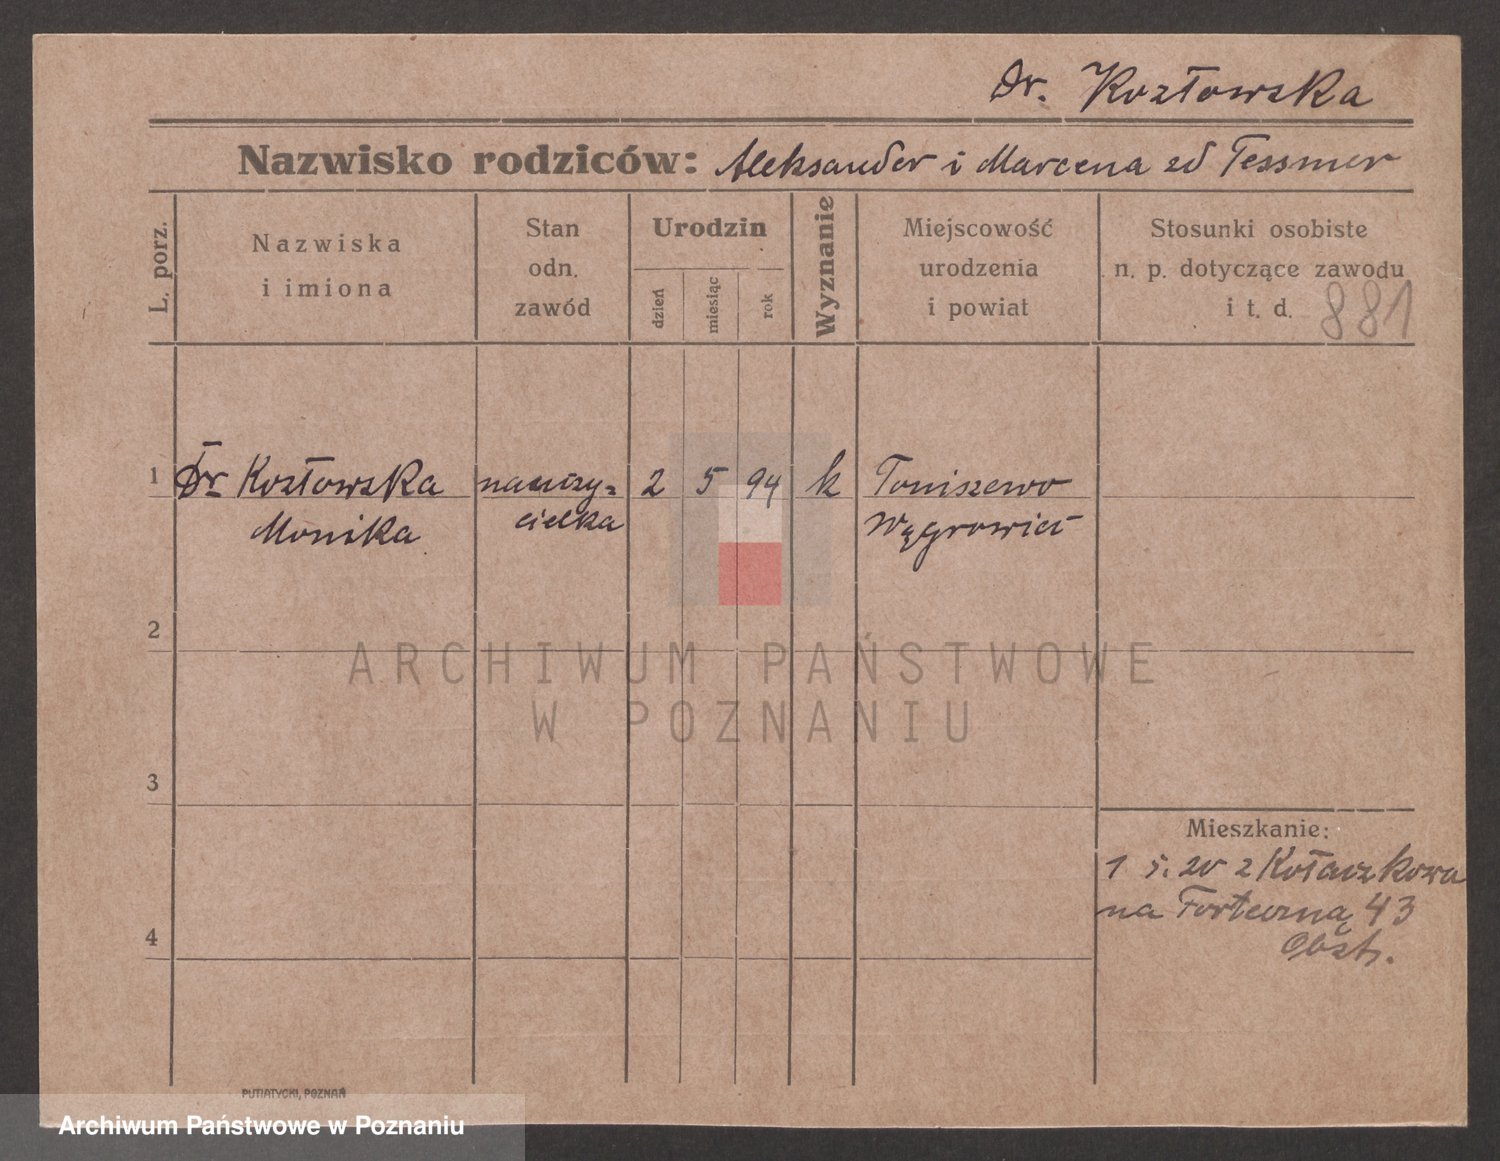 Dr. Kozłowska
Nazwisko rodziców: Aleksander i Marcena zd Tessmer
L. porz.
Nazwiska
i imiona
Stan
odn.
zawód
Urodzin
dzień
miesiąc
rok
Wyznanie
Miejscowość
urodzenia
i powiat
Stosunki osobiste
n. p. dotyczące zawodu
i t. d. 881
1 Dr Kozłowska nauczy= 2 5 94 k Toniszewo
Monika cielka Wągrowiec
2
ARCHIWUM PAŃSTWOWE
W POZNANIU
3
Mieszkanie:
1 5. 20 z Kołaczkowa
na Forteczną 43
4
PUTIATYCKI, POZNAŃ
Archiwum Państwowe w Poznaniu